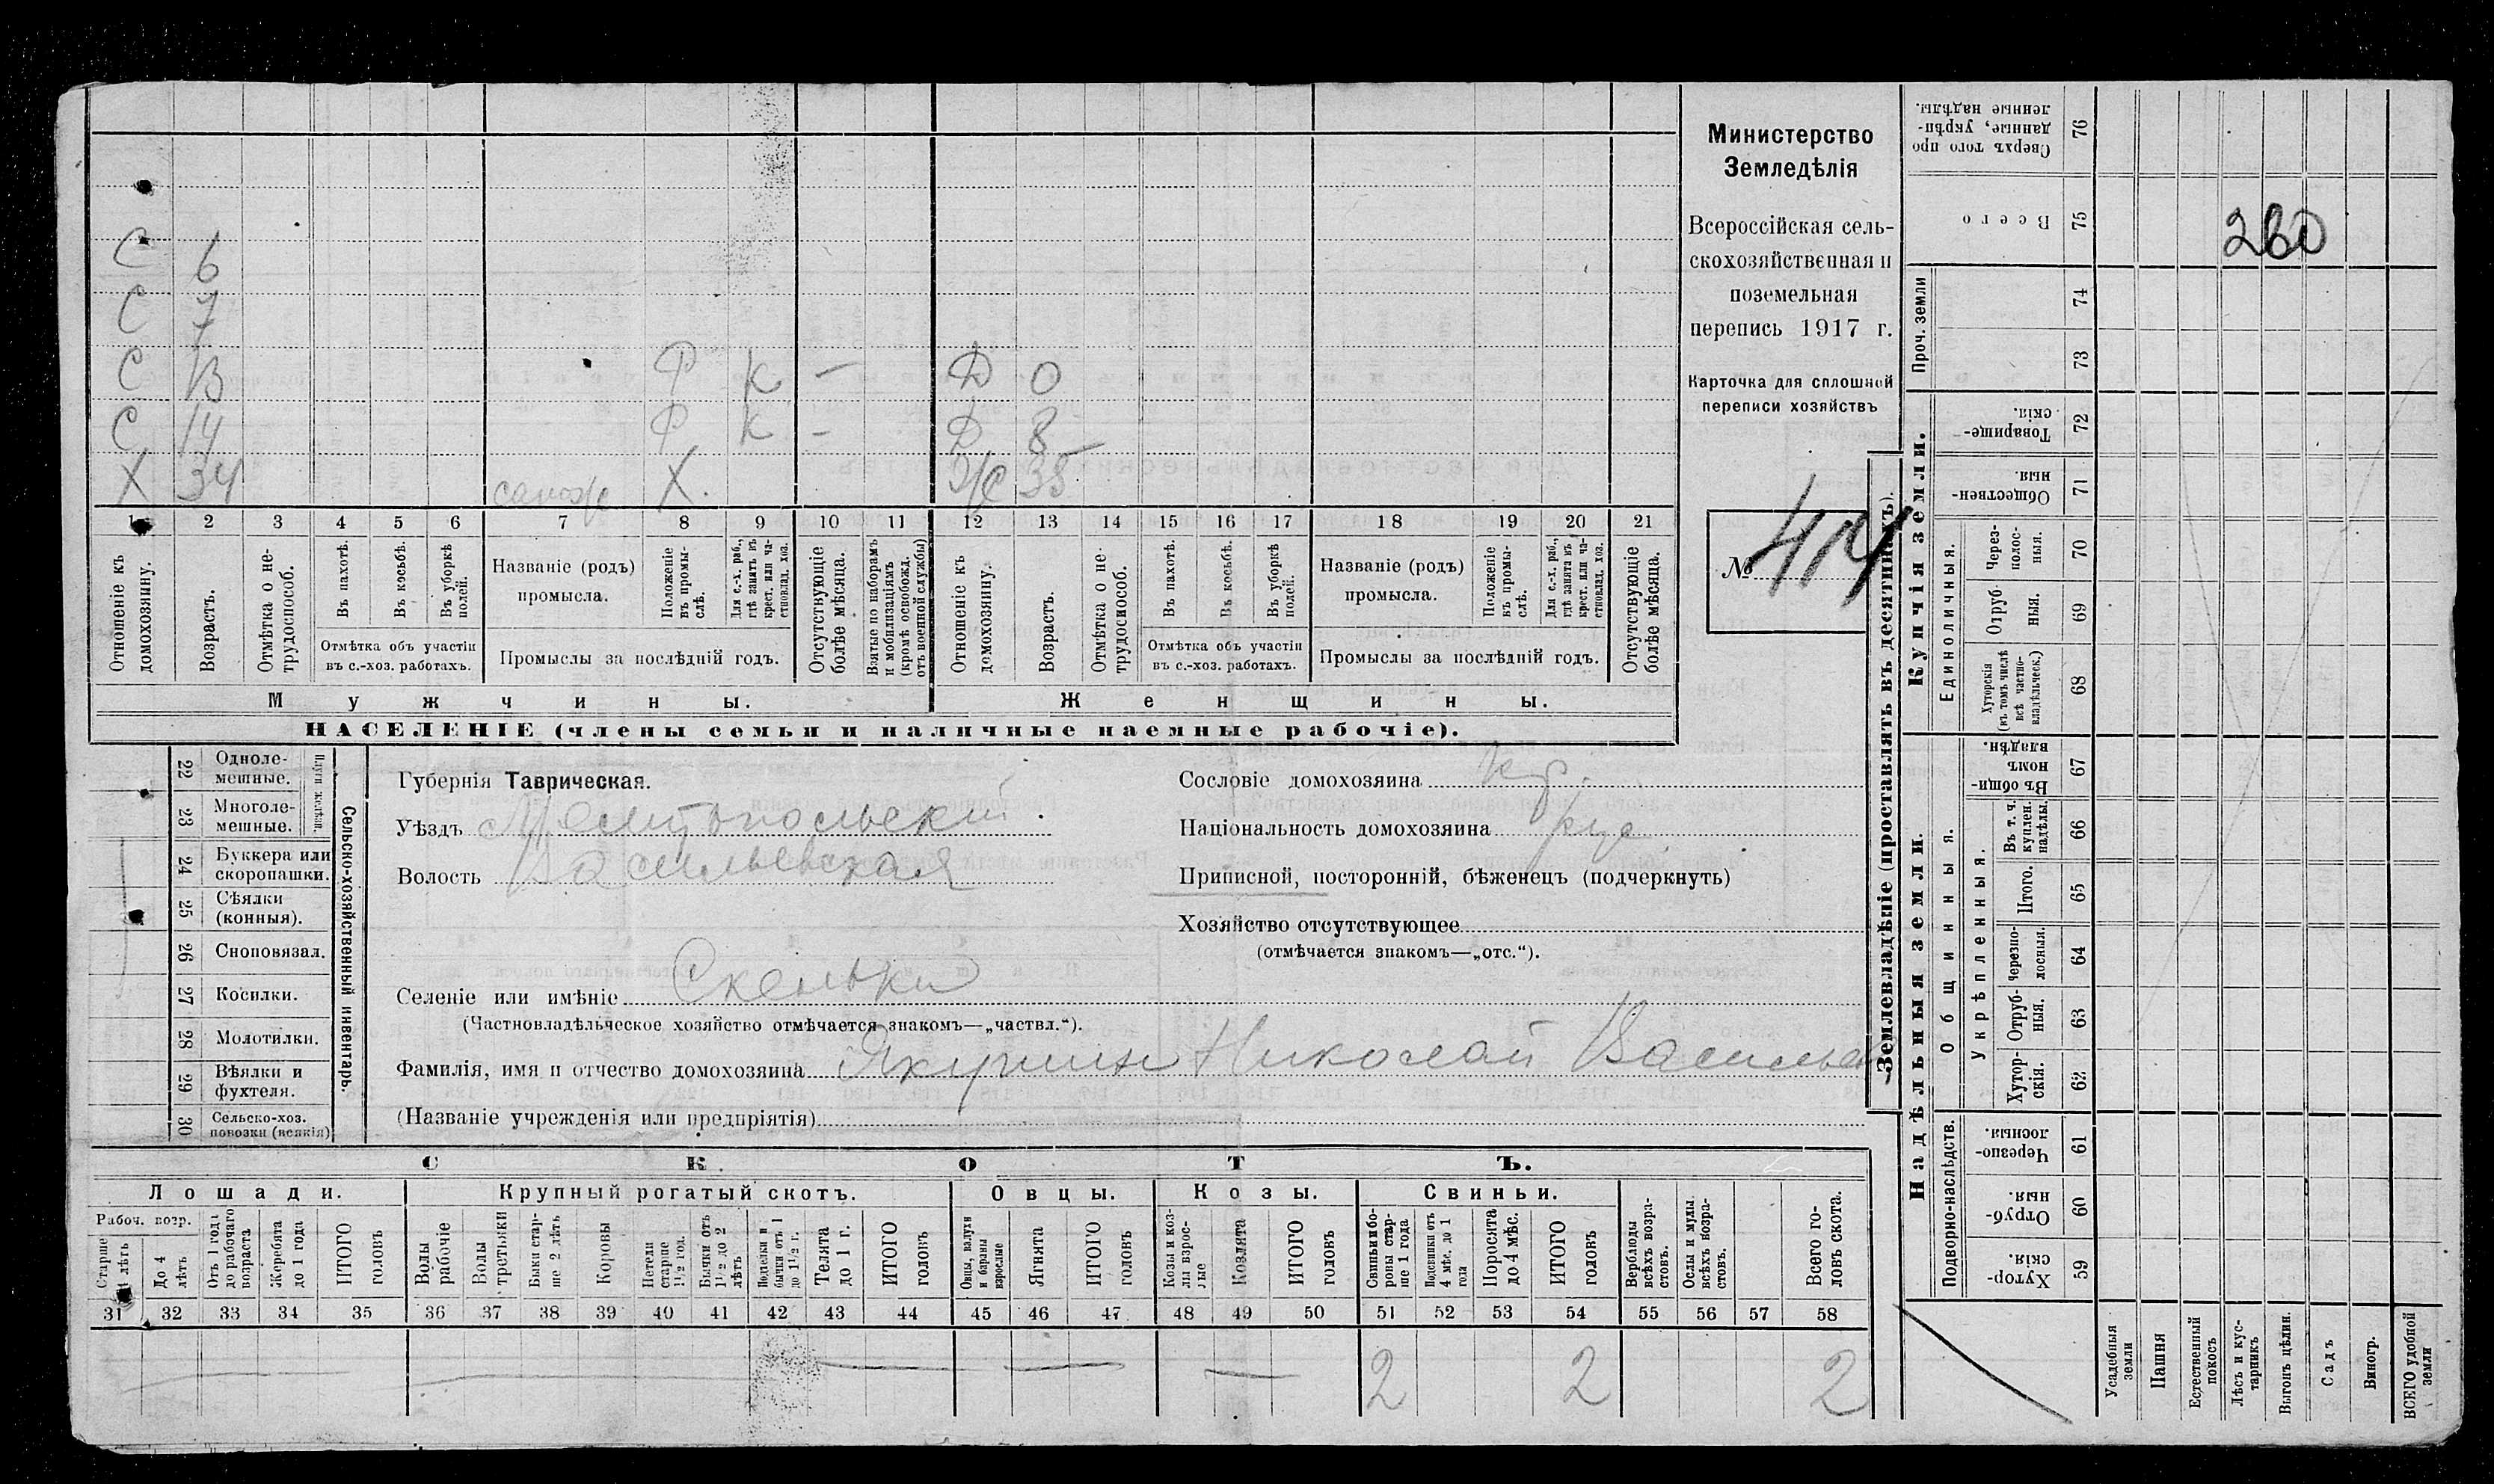 С 6
С 7
С 13 Р К — Д 0
С 14 Р К — Д 8
Х 34 сапож Х. Ж 35
1 2 3 4 5 6 7 8 9 10 11 12 13 14 15 16 17 18 19 20 21
Отношеніе къ домохозяину.
Возрастъ.
Отмѣтка о нетрудоспособ.
Въ пахотѣ.
Въ косьбѣ.
Въ уборкѣ полей.
Отмѣтка объ участіи
въ с.-хоз. работахъ.
Названіе (родъ)
промысла.
Положеніе въ промыслѣ.
Для с.-х. раб., гдѣ занятъ въ крест. или частновлад. хоз.
Промыслы за послѣдній годъ.
Отсутствующіе болѣе мѣсяца.
Взятые по наборамъ и мобилизаціямъ (кромѣ освобожд. отъ военной службы)
Отношеніе къ домохозяину.
Возрастъ.
Отмѣтка о нетрудоспособ.
Въ пахотѣ.
Въ косьбѣ.
Въ уборкѣ полей.
Отмѣтка объ участіи
въ с.-хоз. работахъ.
Названіе (родъ)
промысла.
Положеніе въ промыслѣ.
Для с.-х. раб., гдѣ занята въ крест. или частновлад. хоз.
Промыслы за послѣдній годъ.
Отсутствующіе болѣе мѣсяца.
Мужчины.
Женщины.
НАСЕЛЕНІЕ (члены семьи и наличные наемные рабочіе).
Министерство
Земледѣлія
Всероссійская сель-
скохозяйственная и
поземельная
перепись 1917 г.
Карточка для сплошной
переписи хозяйствъ
№ 414
22 Одноле-
мешные.
23 Многоле-
мешные.
Плуги желѣзн.
24 Буккера или
скоропашки.
25 Сѣялки
(конныя).
26 Сноповязал.
27 Косилки.
28 Молотилки.
29 Вѣялки и
фухтеля.
30 Сельско-хоз.
повозки (всякія)
Сельско-хозяйственный инвентарь.
Губернія Таврическая.
Уѣздъ Мелитопольскій.
Волость Васильевская
Сословіе домохозяина кр.
Національность домохозяина рус.
Приписной, посторонній, бѣженецъ (подчеркнуть)
Хозяйство отсутствующее
(отмѣчается знакомъ—„отс.“).
Селеніе или имѣніе Скельки
(Частновладѣльческое хозяйство отмѣчается знакомъ—„частвл.“).
Фамилія, имя и отчество домохозяина Якушин Николай Василье
(Названіе учрежденія или предпріятія)
СКОТЪ.
Лошади.
Крупный рогатый скотъ.
Овцы.
Козы.
Свиньи.
Рабоч. возр.
Старше 4 лѣтъ
До 4 лѣтъ
Отъ 1 года до рабочаго возраста
Жеребята до 1 года
ИТОГО головъ
Волы рабочіе
Волы третьяки
Быки старше 2 лѣтъ
Коровы
Нетели старше 1½ год.
Бычки отъ 1½ до 2 лѣтъ
Подтелки и бычки отъ 1 до 1½ г.
Телята до 1 г.
ИТОГО головъ
Овцы, валухи и бараны взрослые
Ягнята
ИТОГО головъ
Козы и козлы взрослые
Козлята
ИТОГО головъ
Свиньи и боровы старше 1 года
Подсвинки отъ 4 мѣс. до 1 года
Поросята до 4 мѣс.
ИТОГО головъ
Верблюды всѣхъ возрастовъ.
Ослы и мулы всѣхъ возрастовъ.
Всего головъ скота.
31 32 33 34 35 36 37 38 39 40 41 42 43 44 45 46 47 48 49 50 51 52 53 54 55 56 57 58
2 2 2
Землевладѣніе (проставлять въ десятинахъ).
Надѣльныя земли.
Купчія земли.
Проч. земли
Сверхъ того проданные, укрѣпленные надѣлы. 76
Всего 75
260
74
73
Товарищескія. 72
Общественныя 71
Единоличныя.
Черезполосныя. 70
Отрубныя. 69
Хуторскія (въ томъ числѣ всѣ частновладѣльческ.) 68
Общинныя.
Въ общинномъ владѣн. 67
Укрѣпленныя.
Въ т. ч. куплен. надѣлы. 66
Итого. 65
Черезполосныя. 64
Отрубныя. 63
Хуторскія. 62
Подворно-наслѣдств.
Черезполосныя. 61
Отрубныя. 60
Хуторскія. 59
Усадебныя земли
Пашня
Естественный покосъ
Лѣсъ и кустарникъ
Выгонъ цѣлин.
Садъ
Виногр.
ВСЕГО удобной земли